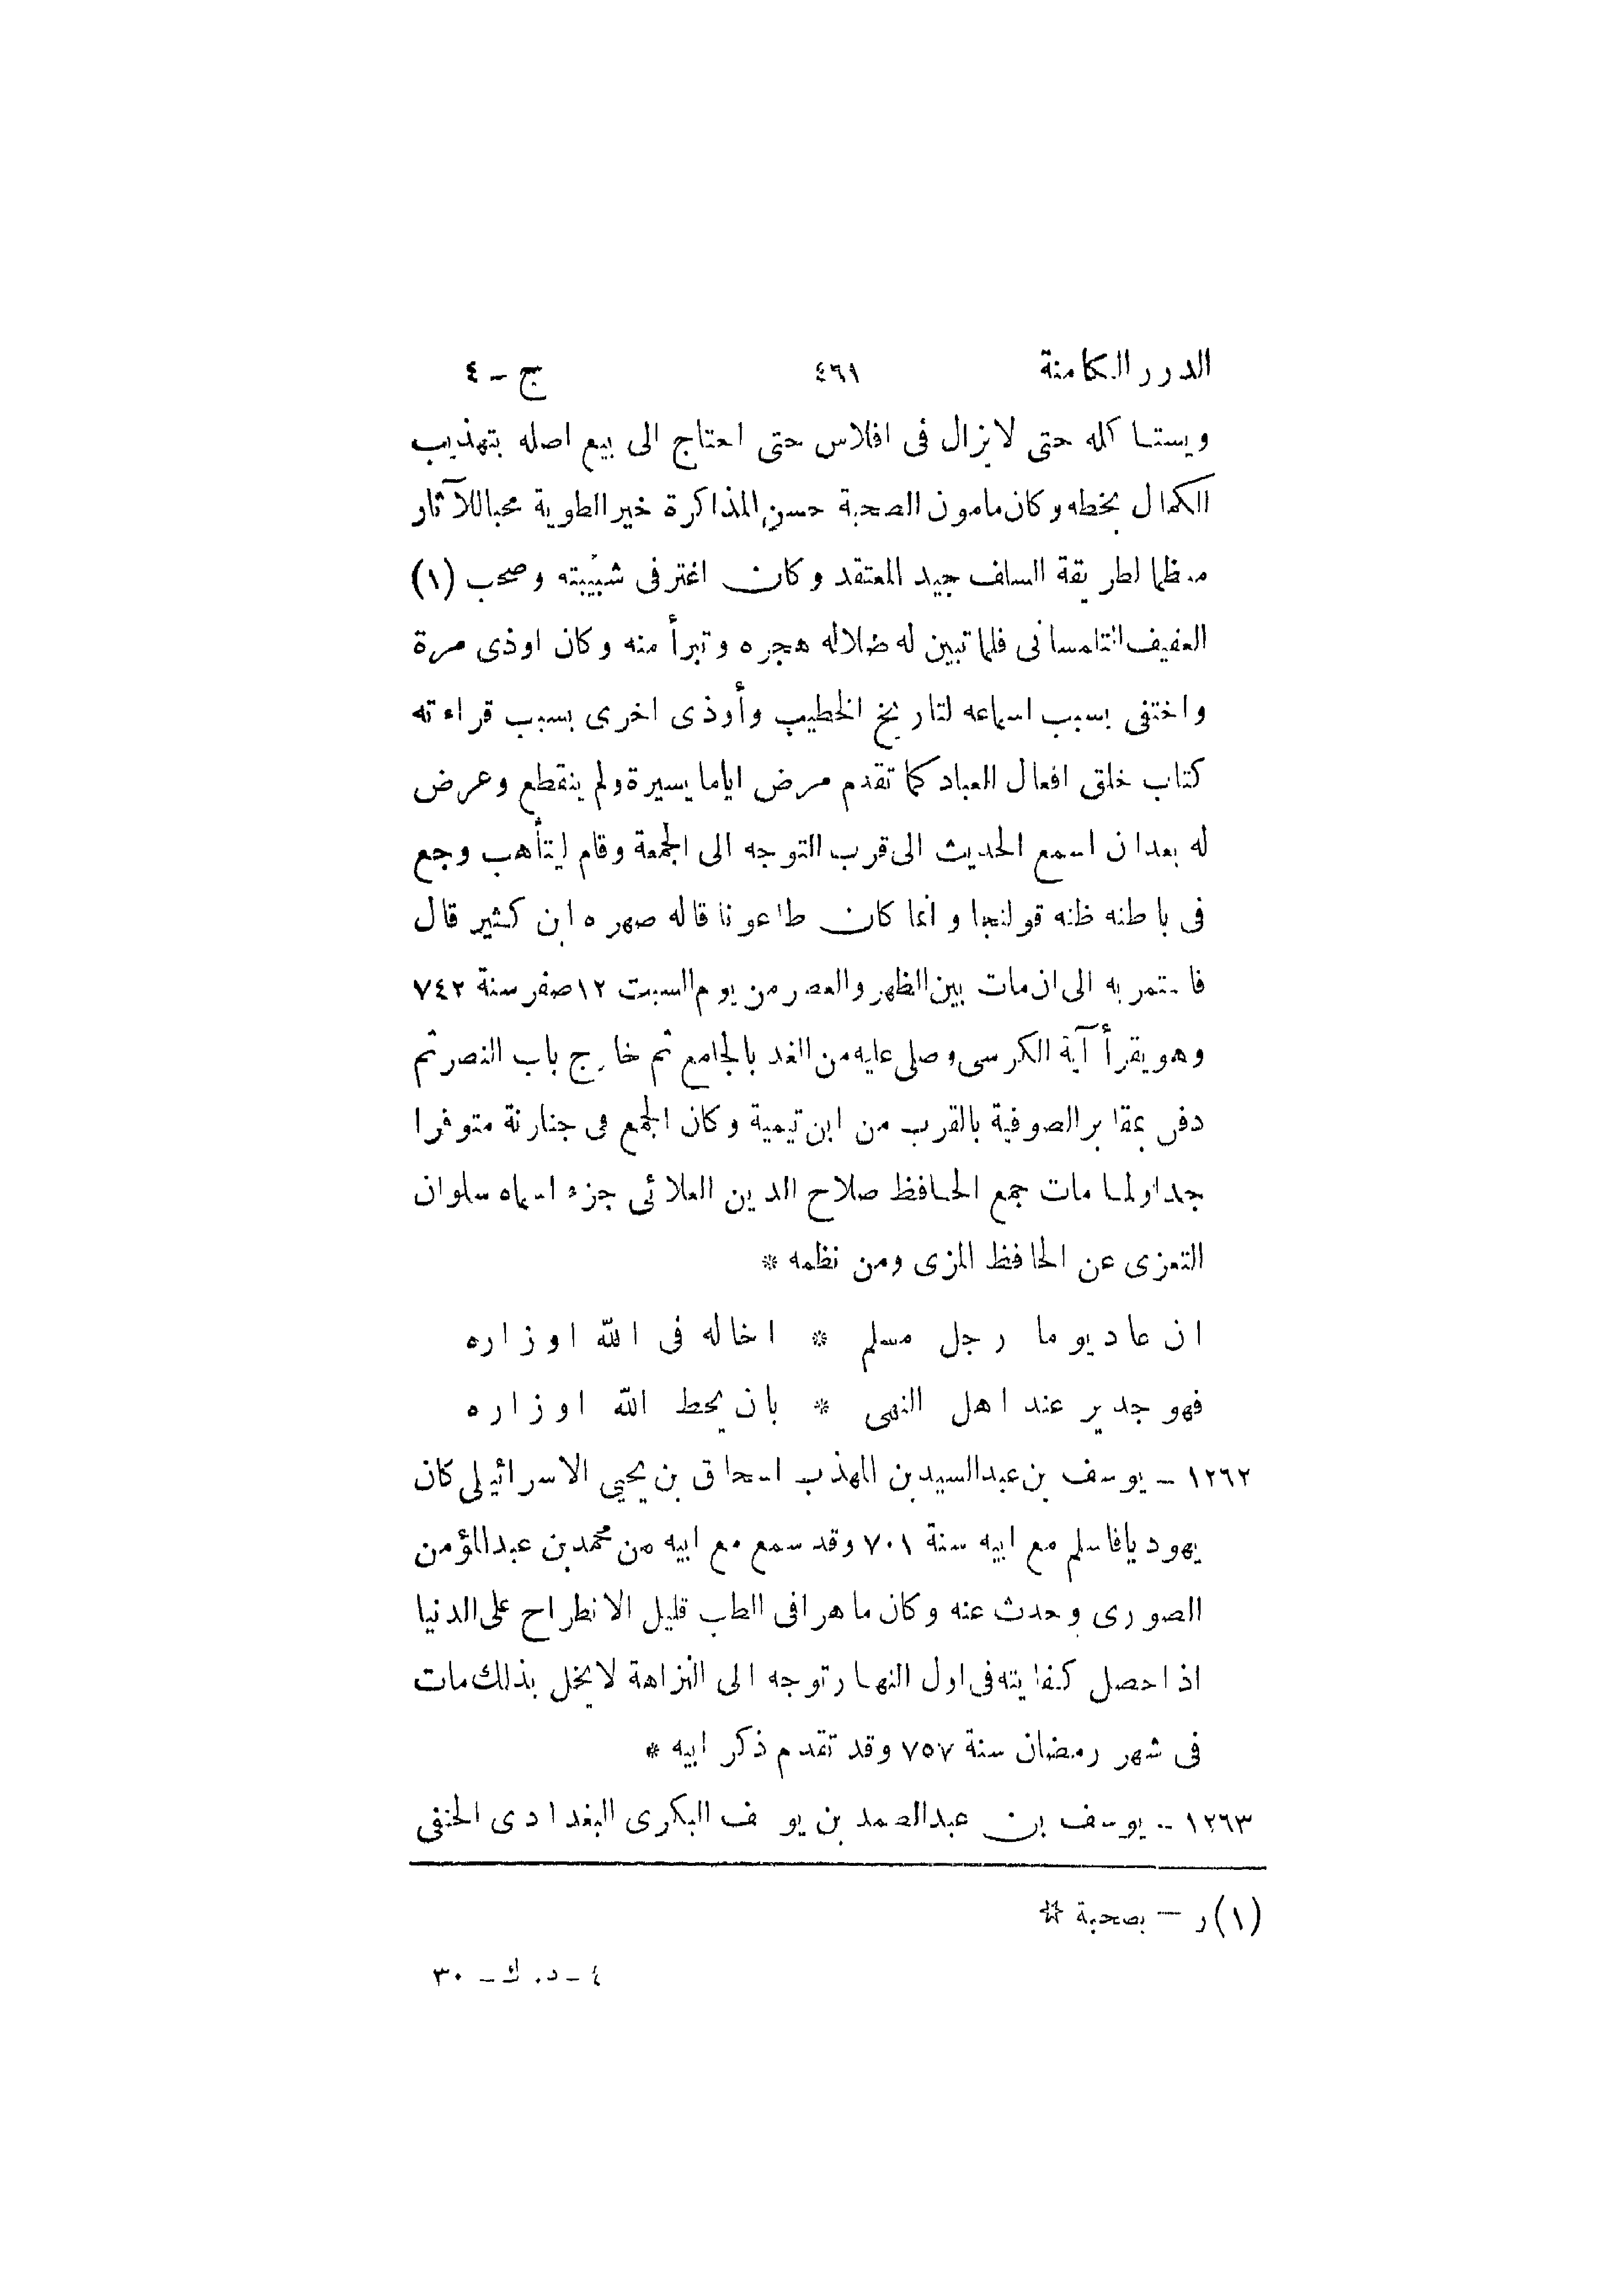 الدرر الكامنة ٤٦١ ج - ٤
ويستأكله حتى لايزال فى افلاس حتى احتاج الى بيع اصله بتهذيب
الكمال بخطه وكان مامون الصحبة حسن المذاكرة خير الطوية محبا للآثار
معظما لطريقة السلف جيد المعتقد وكان اغتر فى شبيبته وصحب (١)
العفيف التلمسانى فلما تبين له ضلاله هجره وتبرأ منه وكان اوذى مرة
واختفى بسبب اسماعه لتاريخ الخطيب وأوذى اخرى بسبب قراءته
كتاب خلق افعال العباد كما تقدم مرض اياما يسيرة ولم ينقطع وعرض
له بعد ان اسمع الحديث الى قرب التوجه الى الجمعة وقام ليتأهب وجع
فى باطنه ظنه قولنجا وانما كان طاعونا قاله صهره ابن كثير قال
فاستمر به الى ان مات بين الظهر والعصر من يوم السبت ١٢ صفر سنة ٧٤٢
وهو يقرأ آية الكرسى وصلى عليه من الغد بالجامع ثم خارج باب النصر ثم
دفن بمقابر الصوفية بالقرب من ابن تيمية وكان الجمع فى جنازته متوفرا
جدا ولما مات جمع الحافظ صلاح الدين العلائى جزء اسماه سلوان
التعزى عن الحافظ المزى ومن نظمه *
ان عاد يوما رجل مسلم * اخاله فى الله او زاره
فهو جدير عند اهل النهى * بان يحط الله اوزاره
١٢٦٢ - يوسف بن عبدالسيد بن المهذب اسحاق بن يحيى الاسرائيلى كان
يهوديا فاسلم مع ابيه سنة ٧٠١ وقد سمع مع ابيه من محمد بن عبدالمؤمن
الصورى وحدث عنه وكان ماهرا فى الطب قليل الانطراح على الدنيا
اذا حصل كفايته فى اول النهار توجه الى النزاهة لا يخل بذلك مات
فى شهر رمضان سنة ٧٥٧ وقد تقدم ذكر ابيه *
١٢٦٣ - يوسف بن عبدالصمد بن يوسف البكرى البغدادى الحنفى
(١) ر - بصحبة *
٤ - د. ك - ٣٠